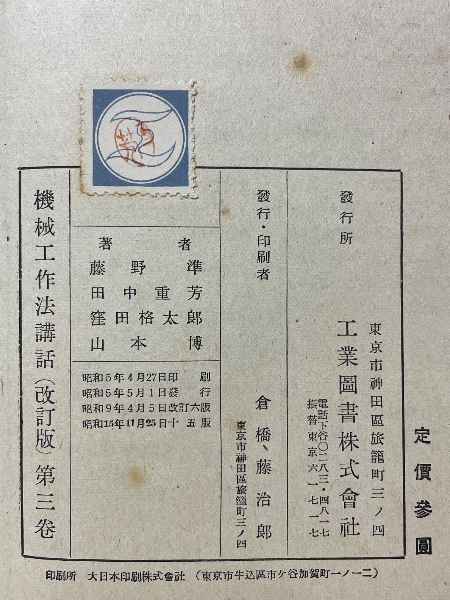 機械工作法講話（改訂版）第三卷
著者
藤野準
田中重芳
窪田格太郎
山本博
昭和5年4月27日印刷
昭和5年5月1日發行
昭和9年4月5日改訂六版
昭和15年11月25日十五版
發行・印刷者
倉橋藤治郎
東京市神田區旅籠町三ノ四
發行所
東京市神田區旅籠町三ノ四
工業圖書株式會社
電話下谷〇二八三・四八一七
振替東京六一七一七
定價參圓
印刷所 大日本印刷株式會社 （東京市牛込區市ケ谷加賀町一ノ一二）